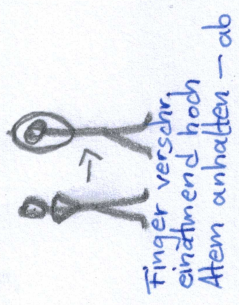 Finger verschr.
einatmend hoch
Atem anhalten – ab